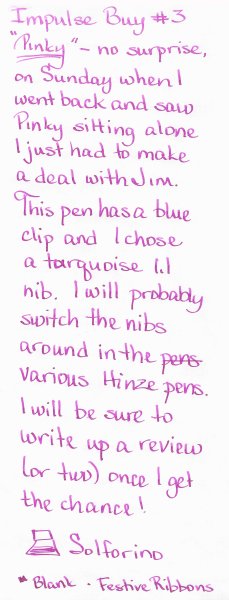 Impulse Buy #3
"Pinky" - no surprise,
on Sunday when I
went back and saw
Pinky sitting alone
I just had to make
a deal with Jim.
This pen has a blue
clip and I chose
a turquoise 1.1
nib. I will probably
switch the nibs
around in the pens
various Hinze pens.
I will be sure to
write up a review
(or two) once I get
the chance!
Solforino
* Blank · Festive Ribbons